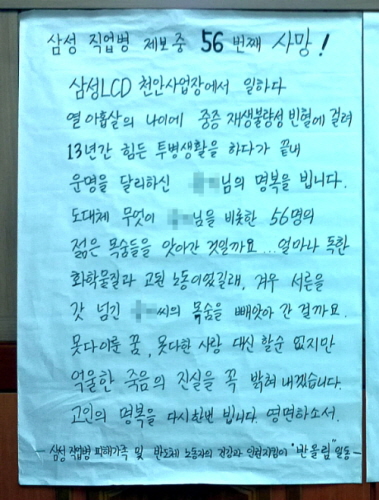 삼성 직업병 제보 중 56 번째 사망!
삼성LCD 천안사업장에서 일하다
열아홉살의 나이에 중증 재생불량성 빈혈에 걸려
13년간 힘든 투병생활을 하다가 끝내
운명을 달리하신 님의 명복을 빕니다.
도대체 무엇이 님을 비롯한 56명의
젊은 목숨들을 앗아간 것일까요... 얼마나 독한
화학물질과 고된 노동이었길래, 겨우 서른을
갓 넘긴 씨의 목숨을 빼앗아 간 걸까요.
못다이룬 꿈, 못다한 사랑 대신 할순 없지만
억울한 죽음의 진실을 꼭 밝혀내겠습니다.
고인의 명복을 다시한번 빕니다. 영면하소서.
- 삼성 직업병 피해가족 및 반도체 노동자의 건강과 인권지킴이 "반올림" 일동 -